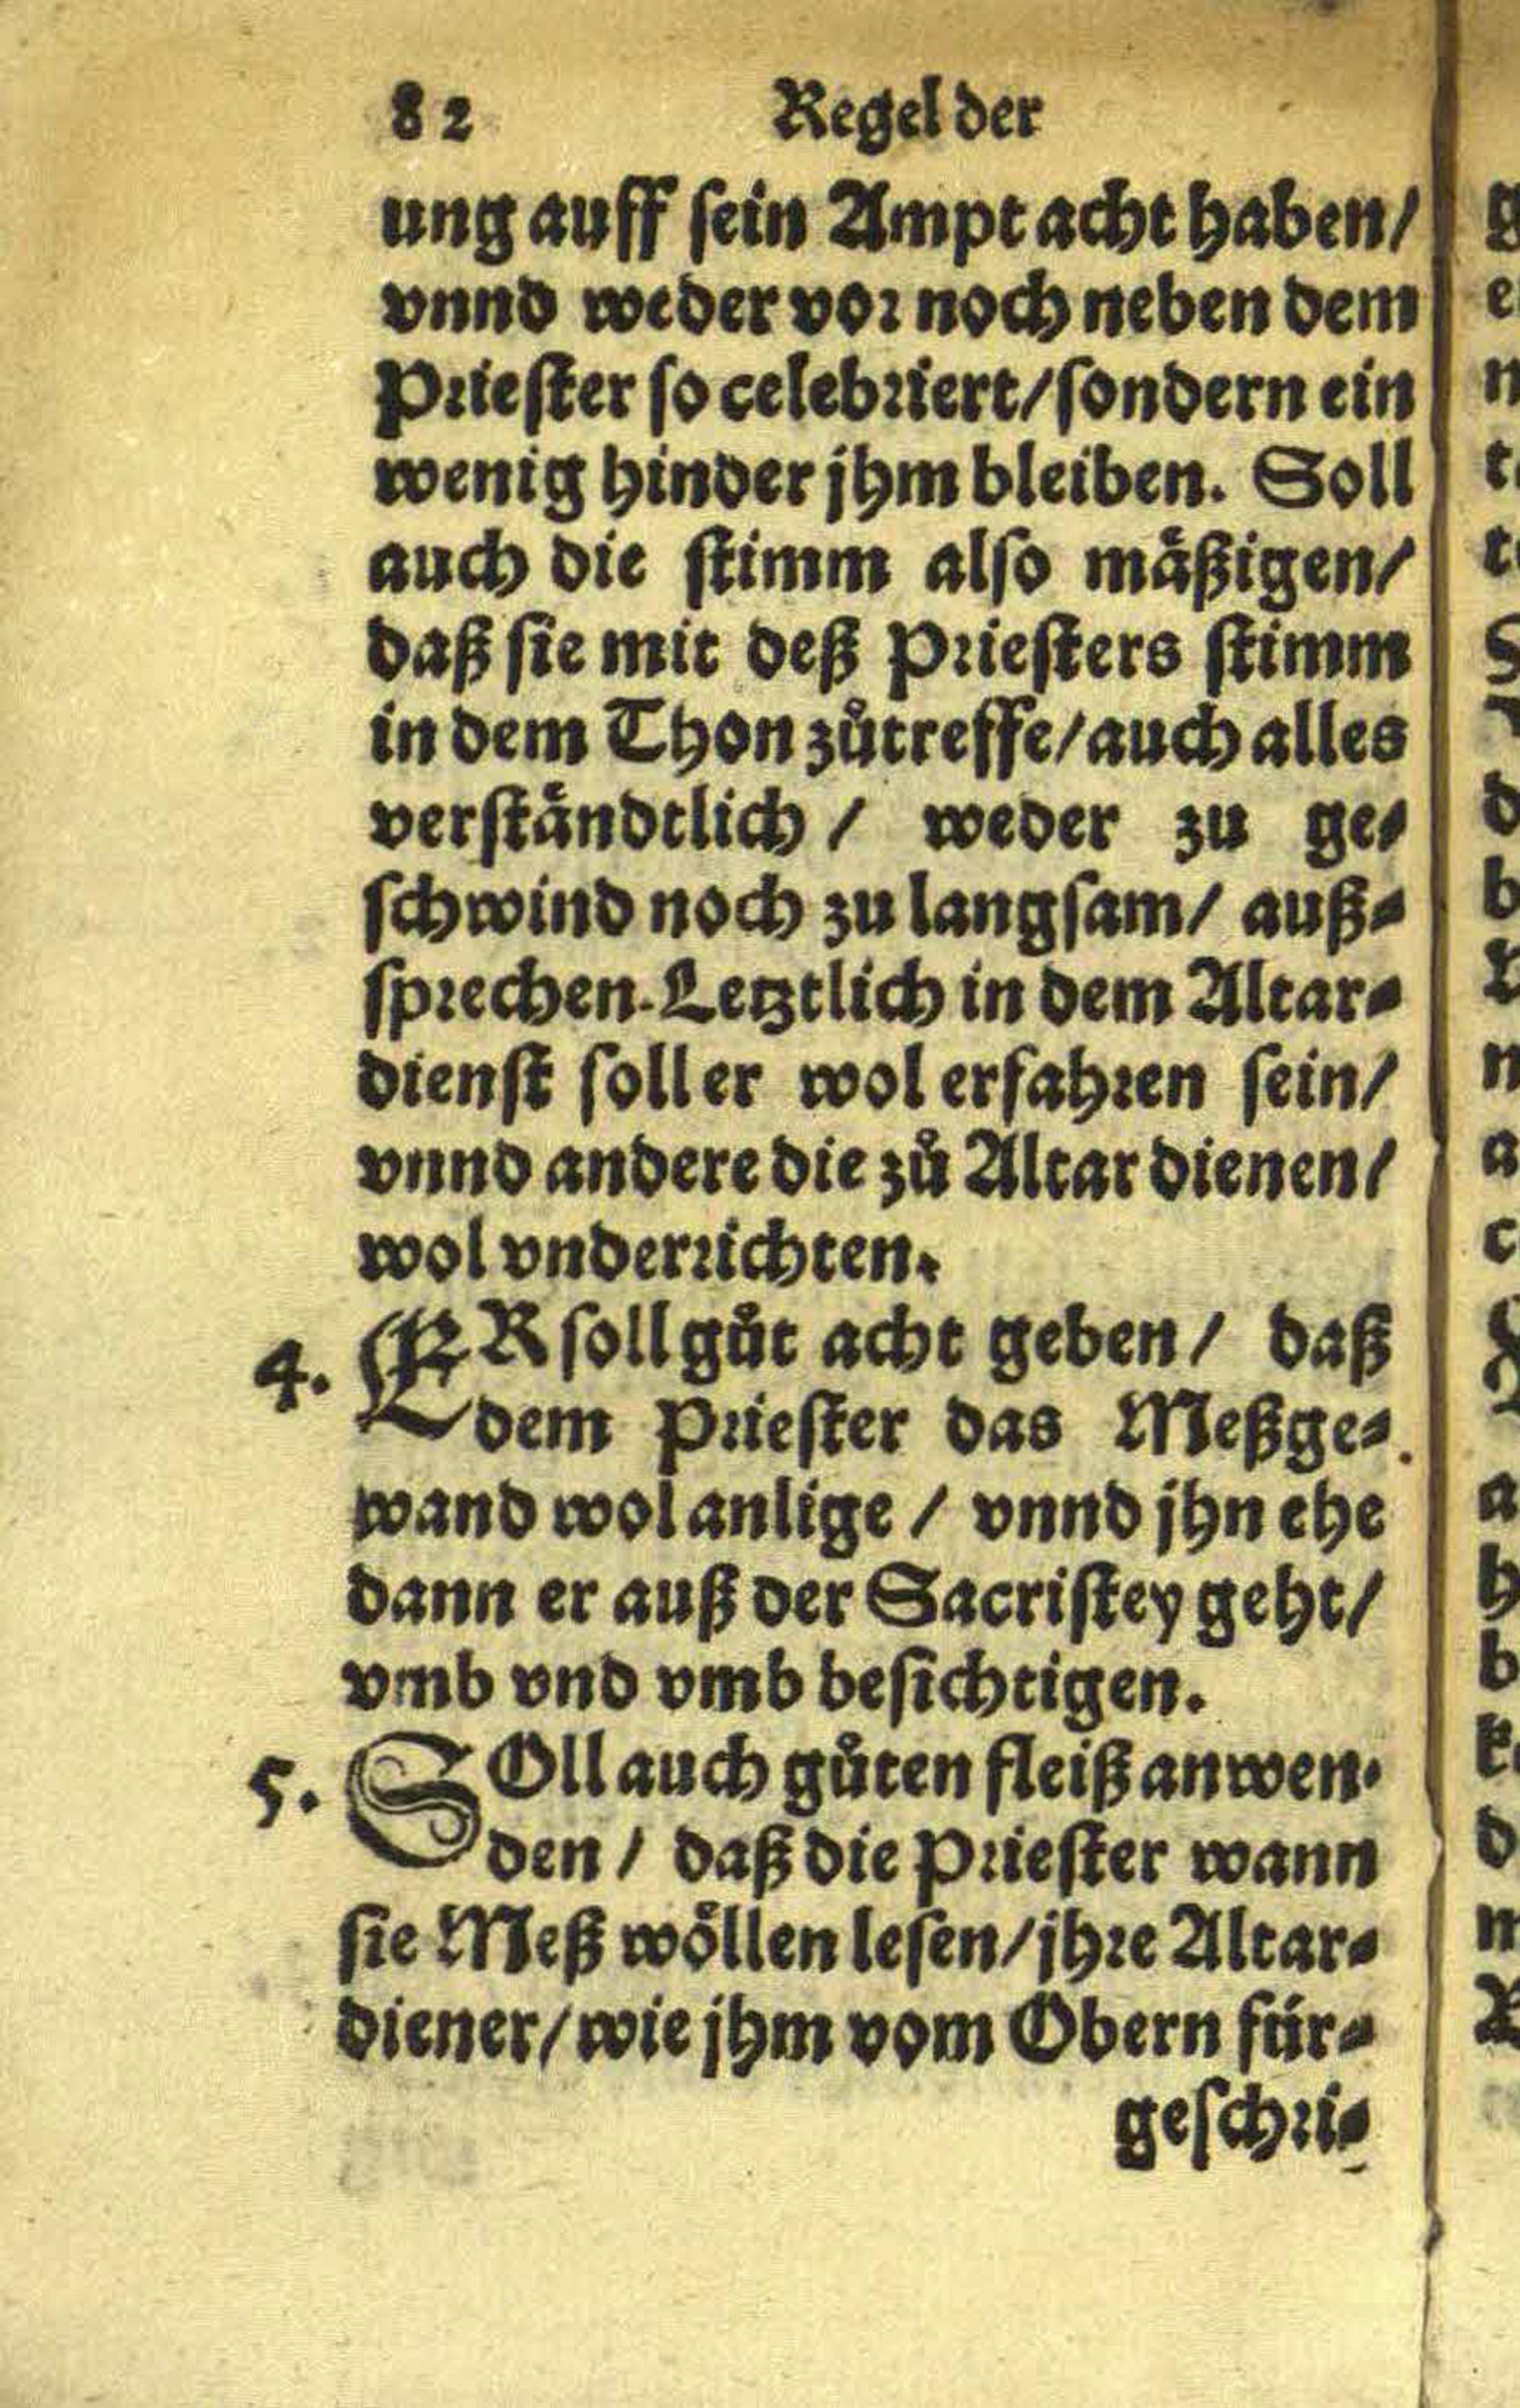 82 Regel der
ung auff sein Ampt acht haben/
vnnd weder vor noch neben dem
Priester so celebriert/sondern ein
wenig hinder jhm bleiben. Soll
auch die stimm also mäßigen/
daß sie mit deß Priesters stimm
in dem Thon zůtreffe/auch alles
verständtlich / weder zu ge-
schwind noch zu langsam/ auß-
sprechen. Letztlich in dem Altar-
dienst soll er wol erfahren sein/
vnnd andere die zů Altar dienen/
wol vnderrichten.
4. ER soll gůt acht geben/ daß
dem Priester das Meßge-
wand wol anlige / vnnd jhn ehe
dann er auß der Sacristey geht/
vmb vnd vmb besichtigen.
5. SOll auch gůten fleiß anwen-
den/ daß die Priester wann
sie Meß wöllen lesen/jhre Altar-
diener/wie jhm vom Obern für-
geschri-